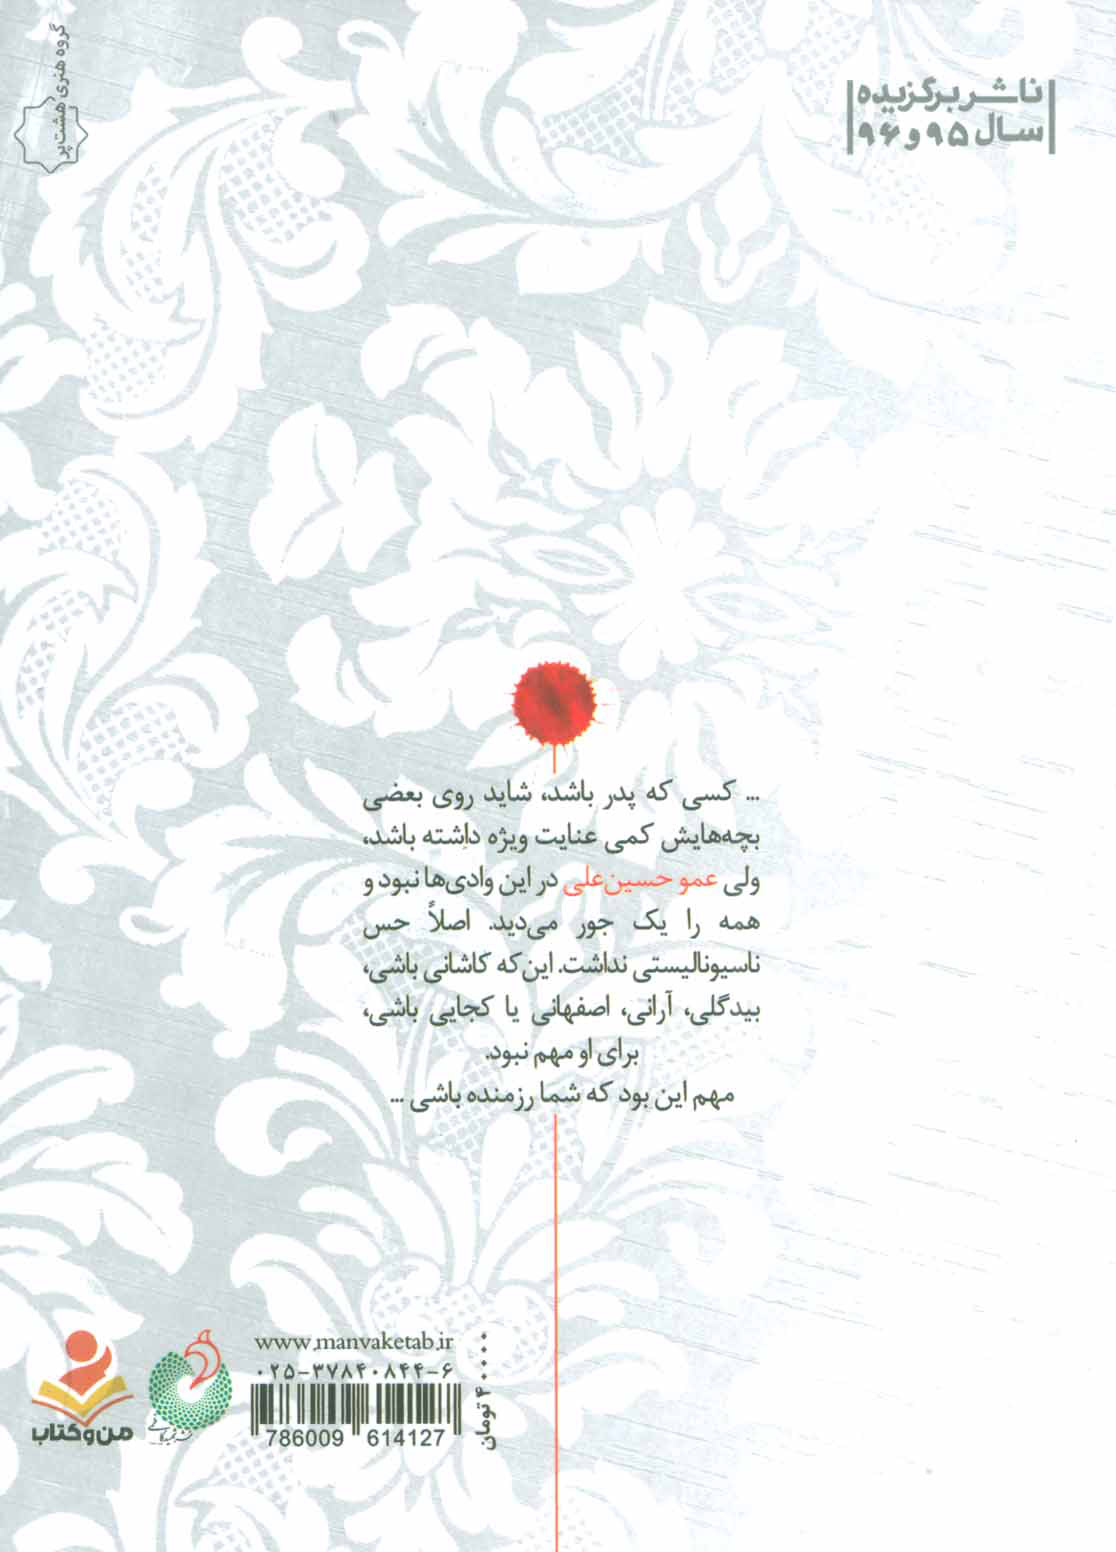 گروه هنری هشت‌پر
ناشر برگزیده
سال ۹۵ و ۹۶
... کسی که پدر باشد، شاید روی بعضی
بچه‌هایش کمی عنایت ویژه داشته باشد،
ولی عمو حسین‌علی در این وادی‌ها نبود و
همه را یک جور می‌دید. اصلاً حس
ناسیونالیستی نداشت. این‌که کاشانی باشی،
بیدگلی، آرانی، اصفهانی یا کجایی باشی،
برای او مهم نبود.
مهم این بود که شما رزمنده باشی ...
www.manvaketab.ir
۰۲۵-۳۷۸۴۰۸۴۴-۶
786009 614127
۴۰۰۰۰ تومان
من و کتاب